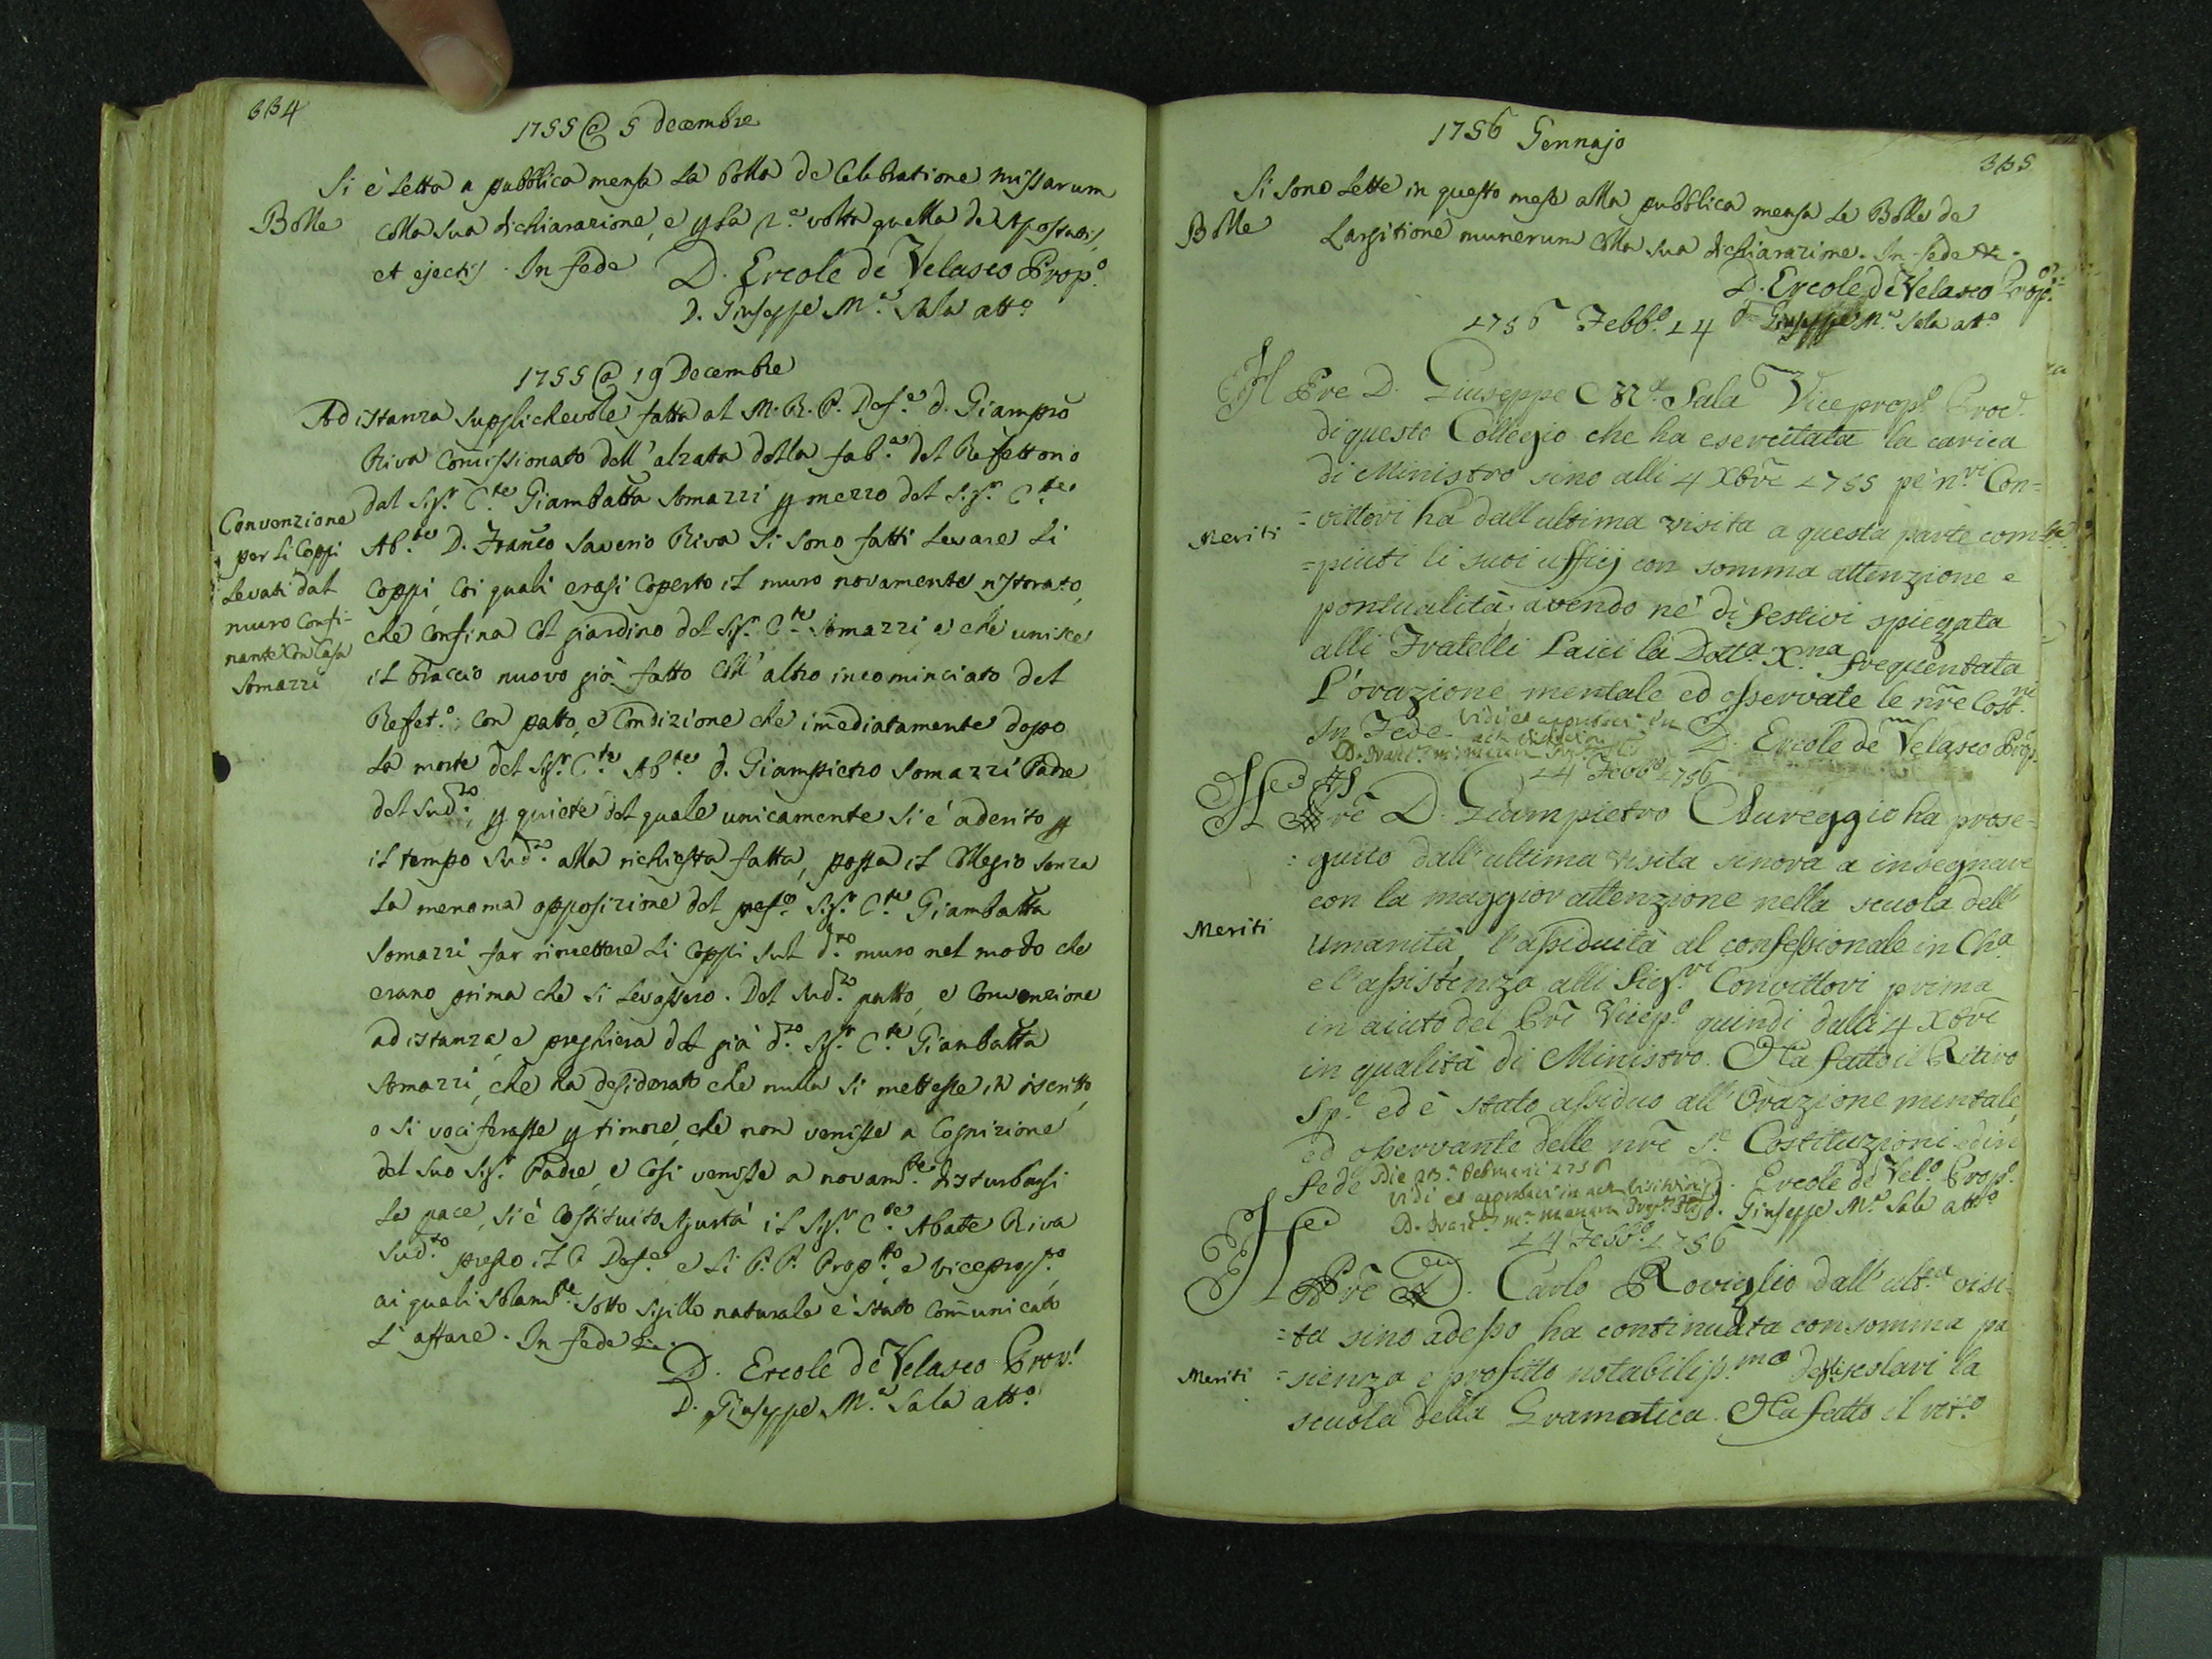 334
1755 @ 5 decembre
Si è letta a pubblica mensa la bolla de Celebratione missarum
Bolle
colla sua dichiarazione, e p la 2.a volta quella de Apostatis,
et ejectis. In fede D. Ercole de Velasco Prop.o
D. Giuseppe M.a Sala att.o
1755 @ 19 Decembre
Ad istanza supplichevole fatta al M. R. P. Def.e d. Giampro
Riva Comissionato dell'alzata della fab.a del Refettorio
dal Sig.r C.te Giambatta Somazzi p mezzo del Sig.r C.te
Ab.te D. Franco Saverio Riva si sono fatti levare li
coppi, coi quali erasi coperto il muro novamente ristorato,
che confina col giardino del Sig.r C.te Somazzi, e che unisce
il braccio nuovo già fatto coll'altro incominciato del
Refet.o: con patto, e condizione che imediatamente dopo
la morte del Sig.r C.te Ab.te d. Giampietro Somazzi Padre
del sud.to, p quiete del quale unicamente si é aderito p
il tempo sud.o alla richiesta fatta, possa il Collegio senza
la menoma opposizione del pref.o Sig.r C.te Giambatta
Somazzi far rimettere li coppi sul d.to muro nel modo che
erano prima che si levassero. Del sud.o patto, e Convenzione
ad istanza, e preghiera del già d.to Sig.r C.te Giambatta
Somazzi, che ha desiderato che nulla si mettesse in iscritto,
o si vociferasse p timore, che non venisse a Cognizione
del suo Sig.r Padre, e così venisse a novam.te disturbarsi
la pace, si è costituito sgurtà il Sig.r C.te Abate Riva
sud.to presso il P. Def.e e li P. P. Prop.to, e viceprop.to,
ai quali solam.te sotto sigillo naturale è stato comunicato
l'affare. In fede
D. Ercole de Velasco Prop.o
D. Giuseppe M.a Sala att.o
Convenzione
per li Coppi
levati dal
muro Confi-
nante Con Casa
Somazzi
1756 Gennajo
335
Si sono lette in questo mese alla pubblica mensa le Bolle de
Bolle
Largitione munerum colla sua dichiarazione. In fede
D. Ercole de Velasco Prop.o
d. Giuseppe M.a Sala att.o
1756 Febb.o 14
Il Pre D. Giuseppe M.a Sala Viceprop.o Proc.
di questo Collegio che ha esercitata la carica
di Ministro sino alli 4 Xbre 1755 pe' n.ri Con=
=vittori ha dall'ultima visita a questa parte com=
Meriti
=piuti li suoi uffizj con somma attenzione e
pontualità avendo ne' dì festivi spiegata
alli Fratelli Laici la Dott.a X.na frequentata
L'orazione mentale ed osservate le nre Cost.ni
In Fede D. Ercole de Velasco Prop.
Vidi et approbavi in
act. visitationis
14 Febb.o 1756
Il Pre D. Giampietro Aureggio ha prose-
:guito dall'ultima visita sinora a insegnare
con la maggior attenzione nella scuola dell'
Meriti
Umanità, l'assiduità al confessionale in Ch.a
e l'assistenza alli Sig.ri Convittori prima
in aiuto del Pre Vicep.o quindi dalli 4 Xbre
in qualità di Ministro. Ha fatto il Ritiro
Sp.le ed è stato assiduo all'Orazione mentale,
ed osservante delle nre S.e Costituzioni ed in
fede D. Ercole de Vel.o Prop.o
Die 23.a Februarii 1756
Vidi et approbavi in actu visitationis
D. Giuseppe M.a Sala att.o
14 Febb.o 1756
Il Pre D. Carlo Roviglio dall'ult.a visi-
=ta sino adesso ha continuata con somma pa
Meriti
=sienza e profitto notabiliss.mo degli scolari la
scuola della Gramatica. Ha fatto il rit.o